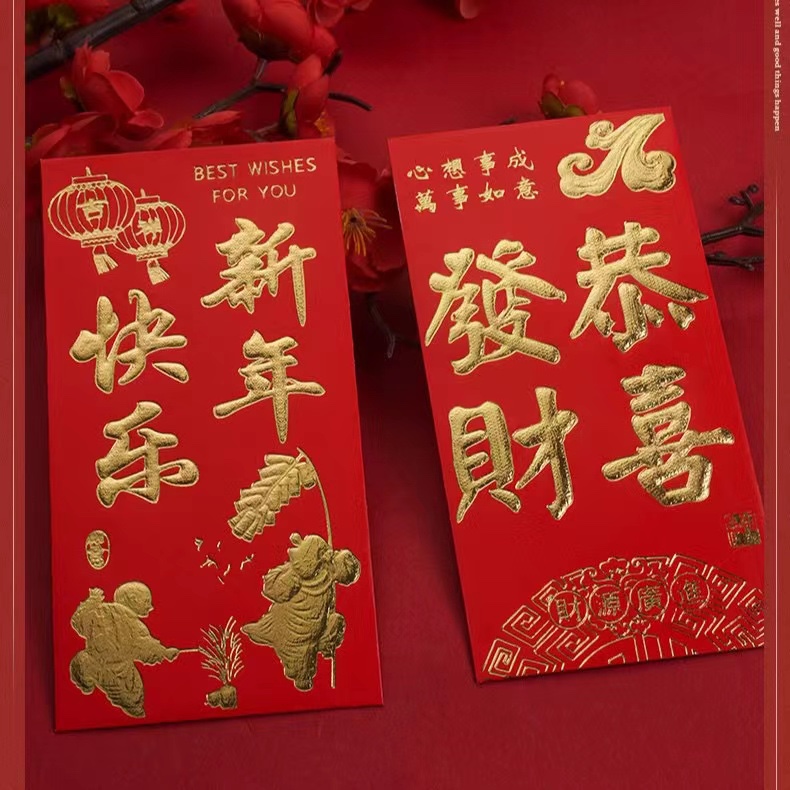 BEST WISHES
FOR YOU
吉
新年
快乐
心想事成
萬事如意
恭喜
發財
財源廣進
es well and good things happen